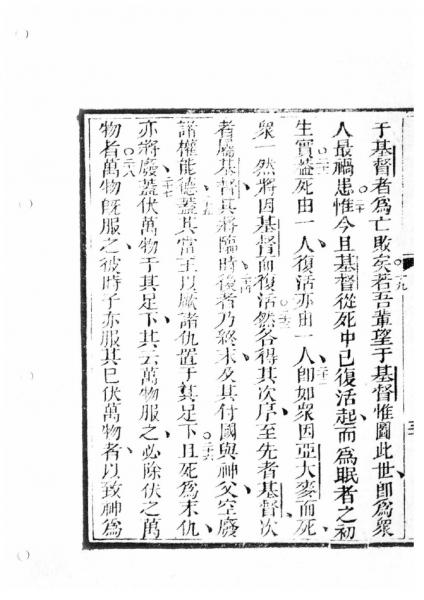 于基督者為亡敗矣若吾輩望于基督惟圖此世即為衆
人最禍患惟今且基督從死中已復活起而為眠者之初
生實蓋死由一人復活亦由一人即如衆因亞大麥而死
衆一然將因基督而復活然各得其次序至先者基督次
者屬基督其將臨時後者乃終末及其付國與神父空廢
諸權能德蓋其當王以厥諸仇置于其足下且死為末仇
亦將廢蓋伏萬物于其足下其云萬物服之必除伏之萬
物者萬物既服之彼時子亦服其已伏萬物者以致神為